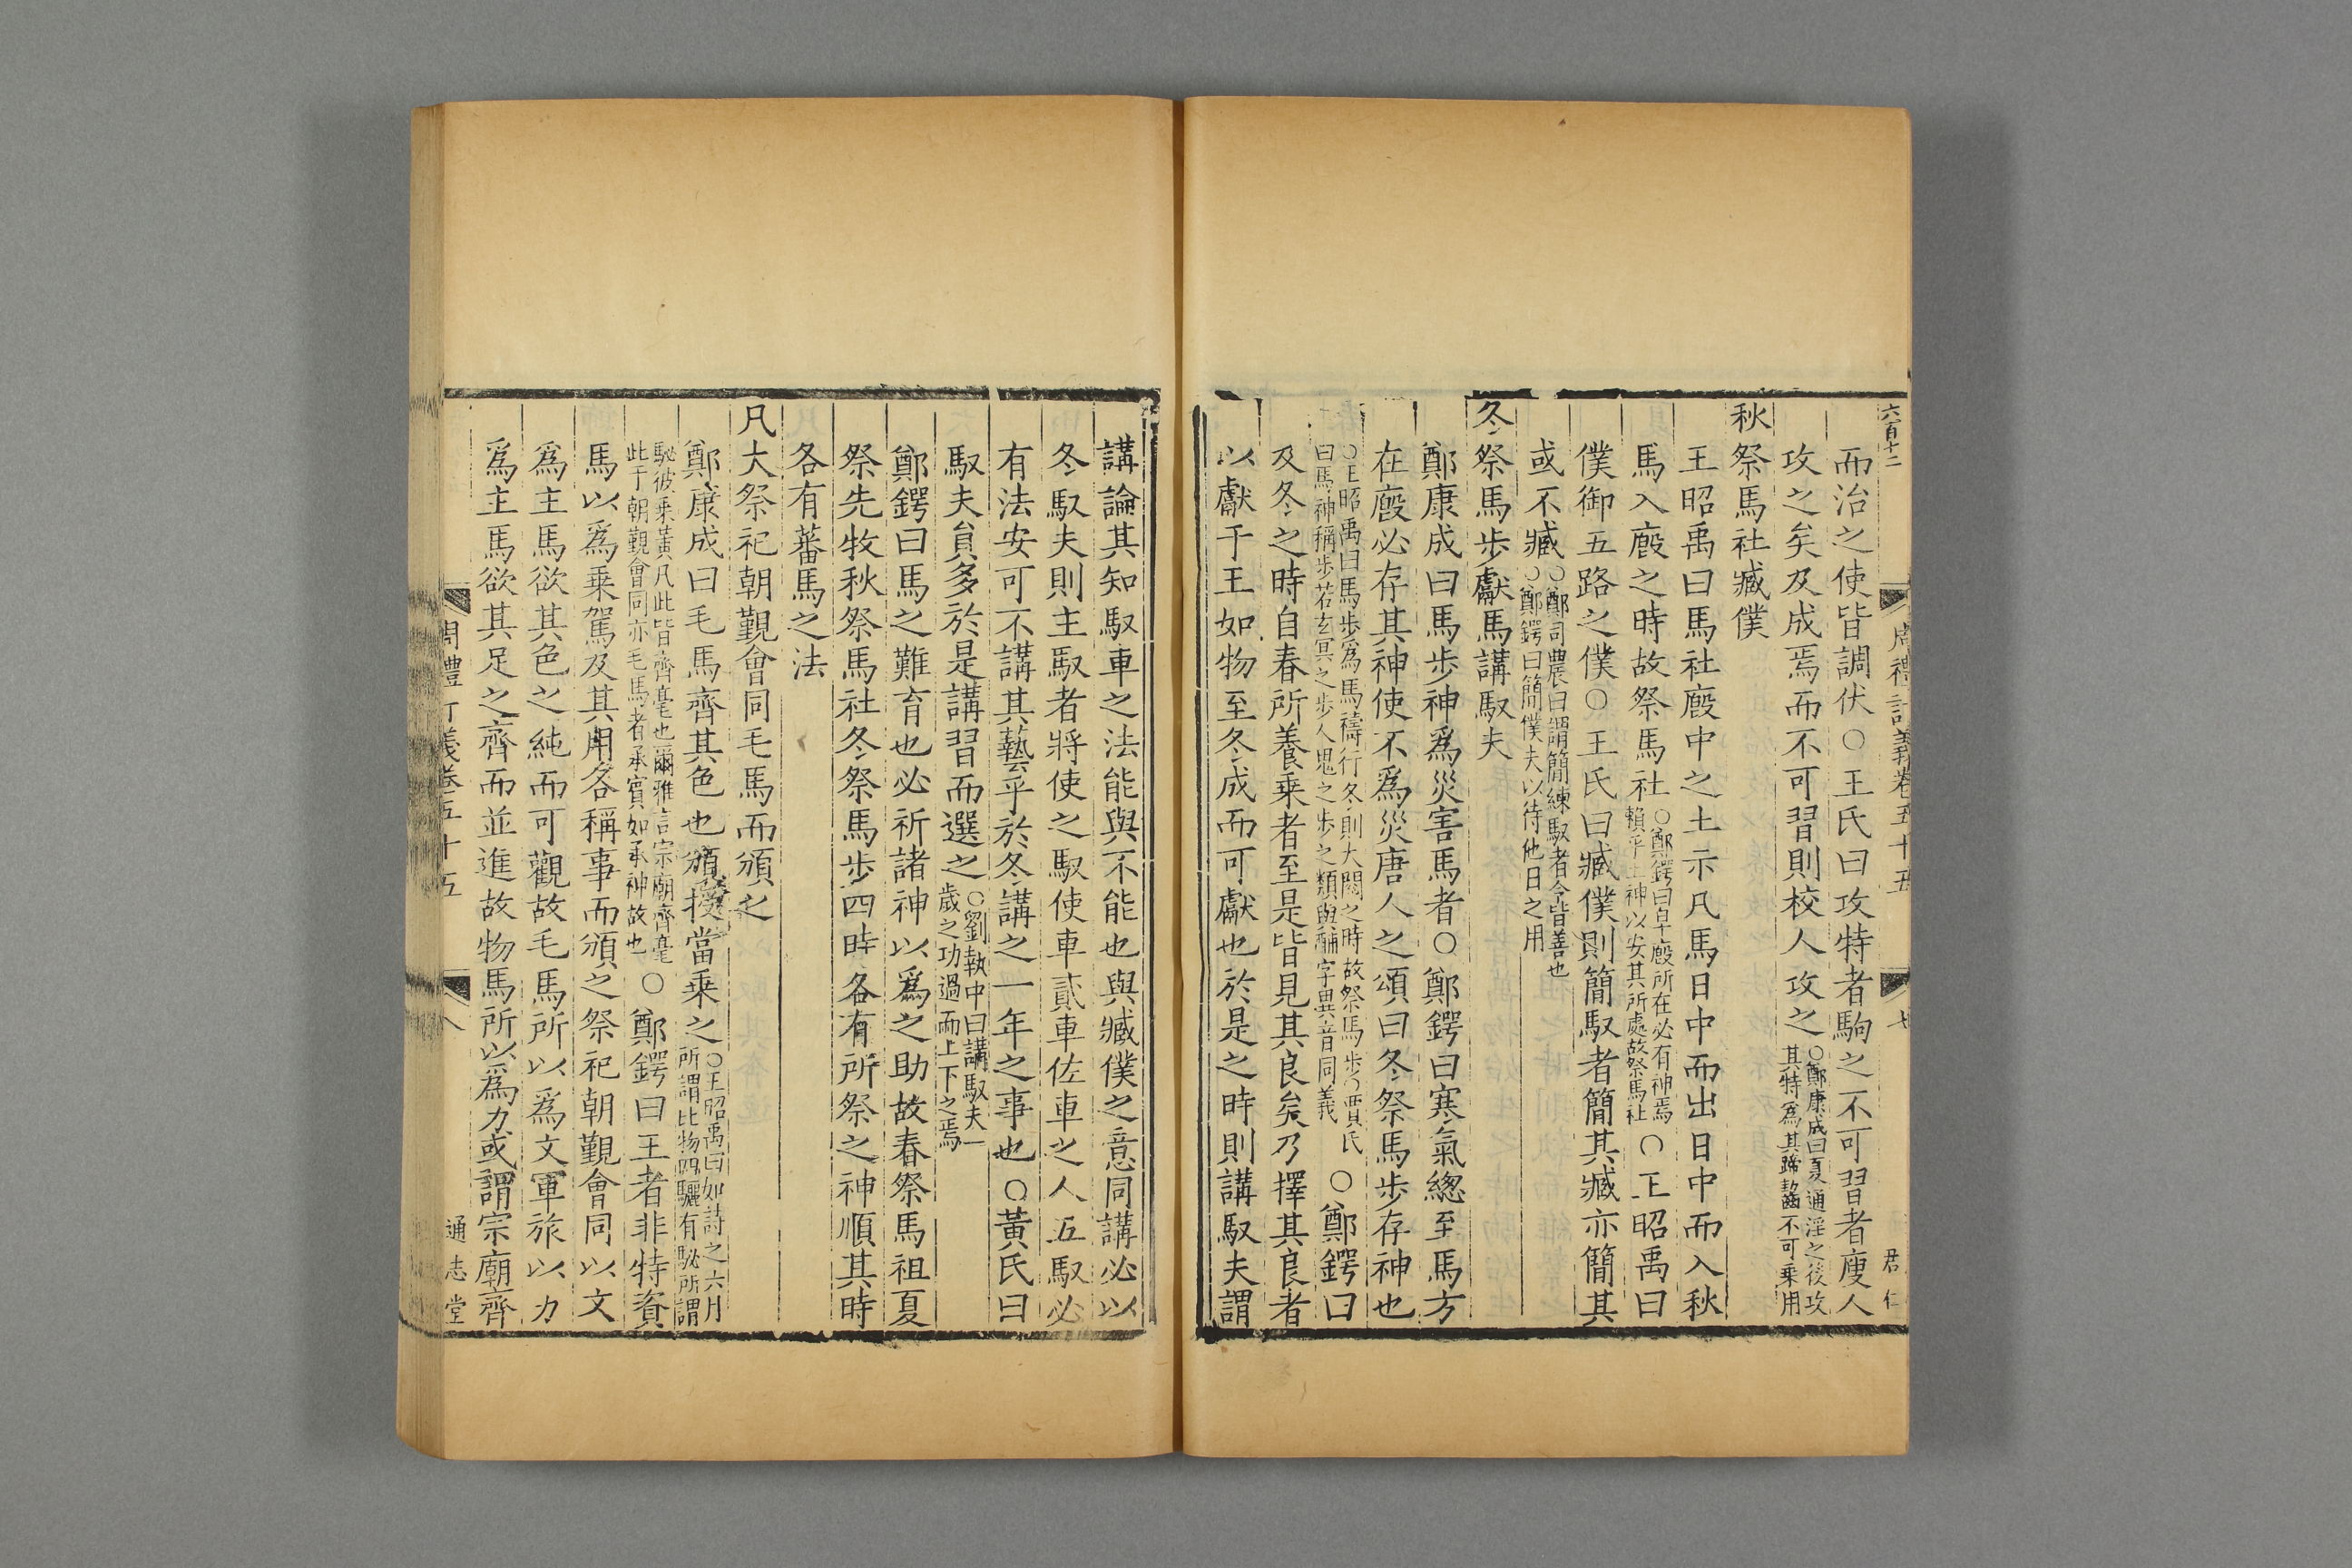 六百十二
周禮訂義卷五十五
七
君仁
而治之使皆調伏○王氏曰攻特者駒之不可習者廋人
攻之矣及成焉而不可習則校人攻之○鄭康成曰夏通淫之後攻
其特爲其蹄齧不可乗用
秋祭馬社臧僕
王昭禹曰馬社廏中之土示凡馬日中而出日中而入秋
馬入廏之時故祭馬社○鄭鍔曰皁廏所在必有神焉
賴乎土神以安其所處故祭馬社○王昭禹曰
僕御五路之僕○王氏曰臧僕則簡馭者簡其臧亦簡其
或不臧○鄭司農曰謂簡練馭者令皆善也
○鄭鍔曰簡僕夫以待他日之用
冬祭馬步獻馬講馭夫
鄭康成曰馬步神爲災害馬者○鄭鍔曰寒氣緫至馬方
在廏必存其神使不爲災唐人之頌曰冬祭馬步存神也
○王昭禹曰馬步爲馬禱行冬則大閱之時故祭馬步○賈氏
曰馬神稱步若玄冥之步人鬼之步之類與酺字異音同義○鄭鍔曰
及冬之時自春所養乗者至是皆見其良矣乃擇其良者
以獻于王如物至冬成而可獻也於是之時則講馭夫謂
講論其知馭車之法能與不能也與臧僕之意同講必以
冬馭夫則主馭者將使之馭使車貳車佐車之人五馭必
有法安可不講其藝乎於冬講之一年之事也○黃氏曰
馭夫負多於是講習而選之○劉執中曰講馭夫一
歲之功過而上下之焉
鄭鍔曰馬之難育也必祈諸神以爲之助故春祭馬祖夏
祭先牧秋祭馬社冬祭馬步四時各有所祭之神順其時
各有蕃馬之法
凡大祭祀朝覲會同毛馬而頒之
鄭康成曰毛馬齊其色也頒授當乗之○王昭禹曰如詩之六月
所謂比物四驪有駜所謂
駜彼乗黃凡此皆齊毫也爾雅言宗廟齊毫
此于朝覲會同亦毛馬者承賓如承神故也○鄭鍔曰王者非特資
馬以爲乗駕及其用各稱事而頒之祭祀朝覲會同以文
爲主馬欲其色之純而可觀故毛馬所以爲文軍旅以力
爲主馬欲其足之齊而並進故物馬所以爲力或謂宗廟齊
周禮訂義卷五十五
八
通志堂